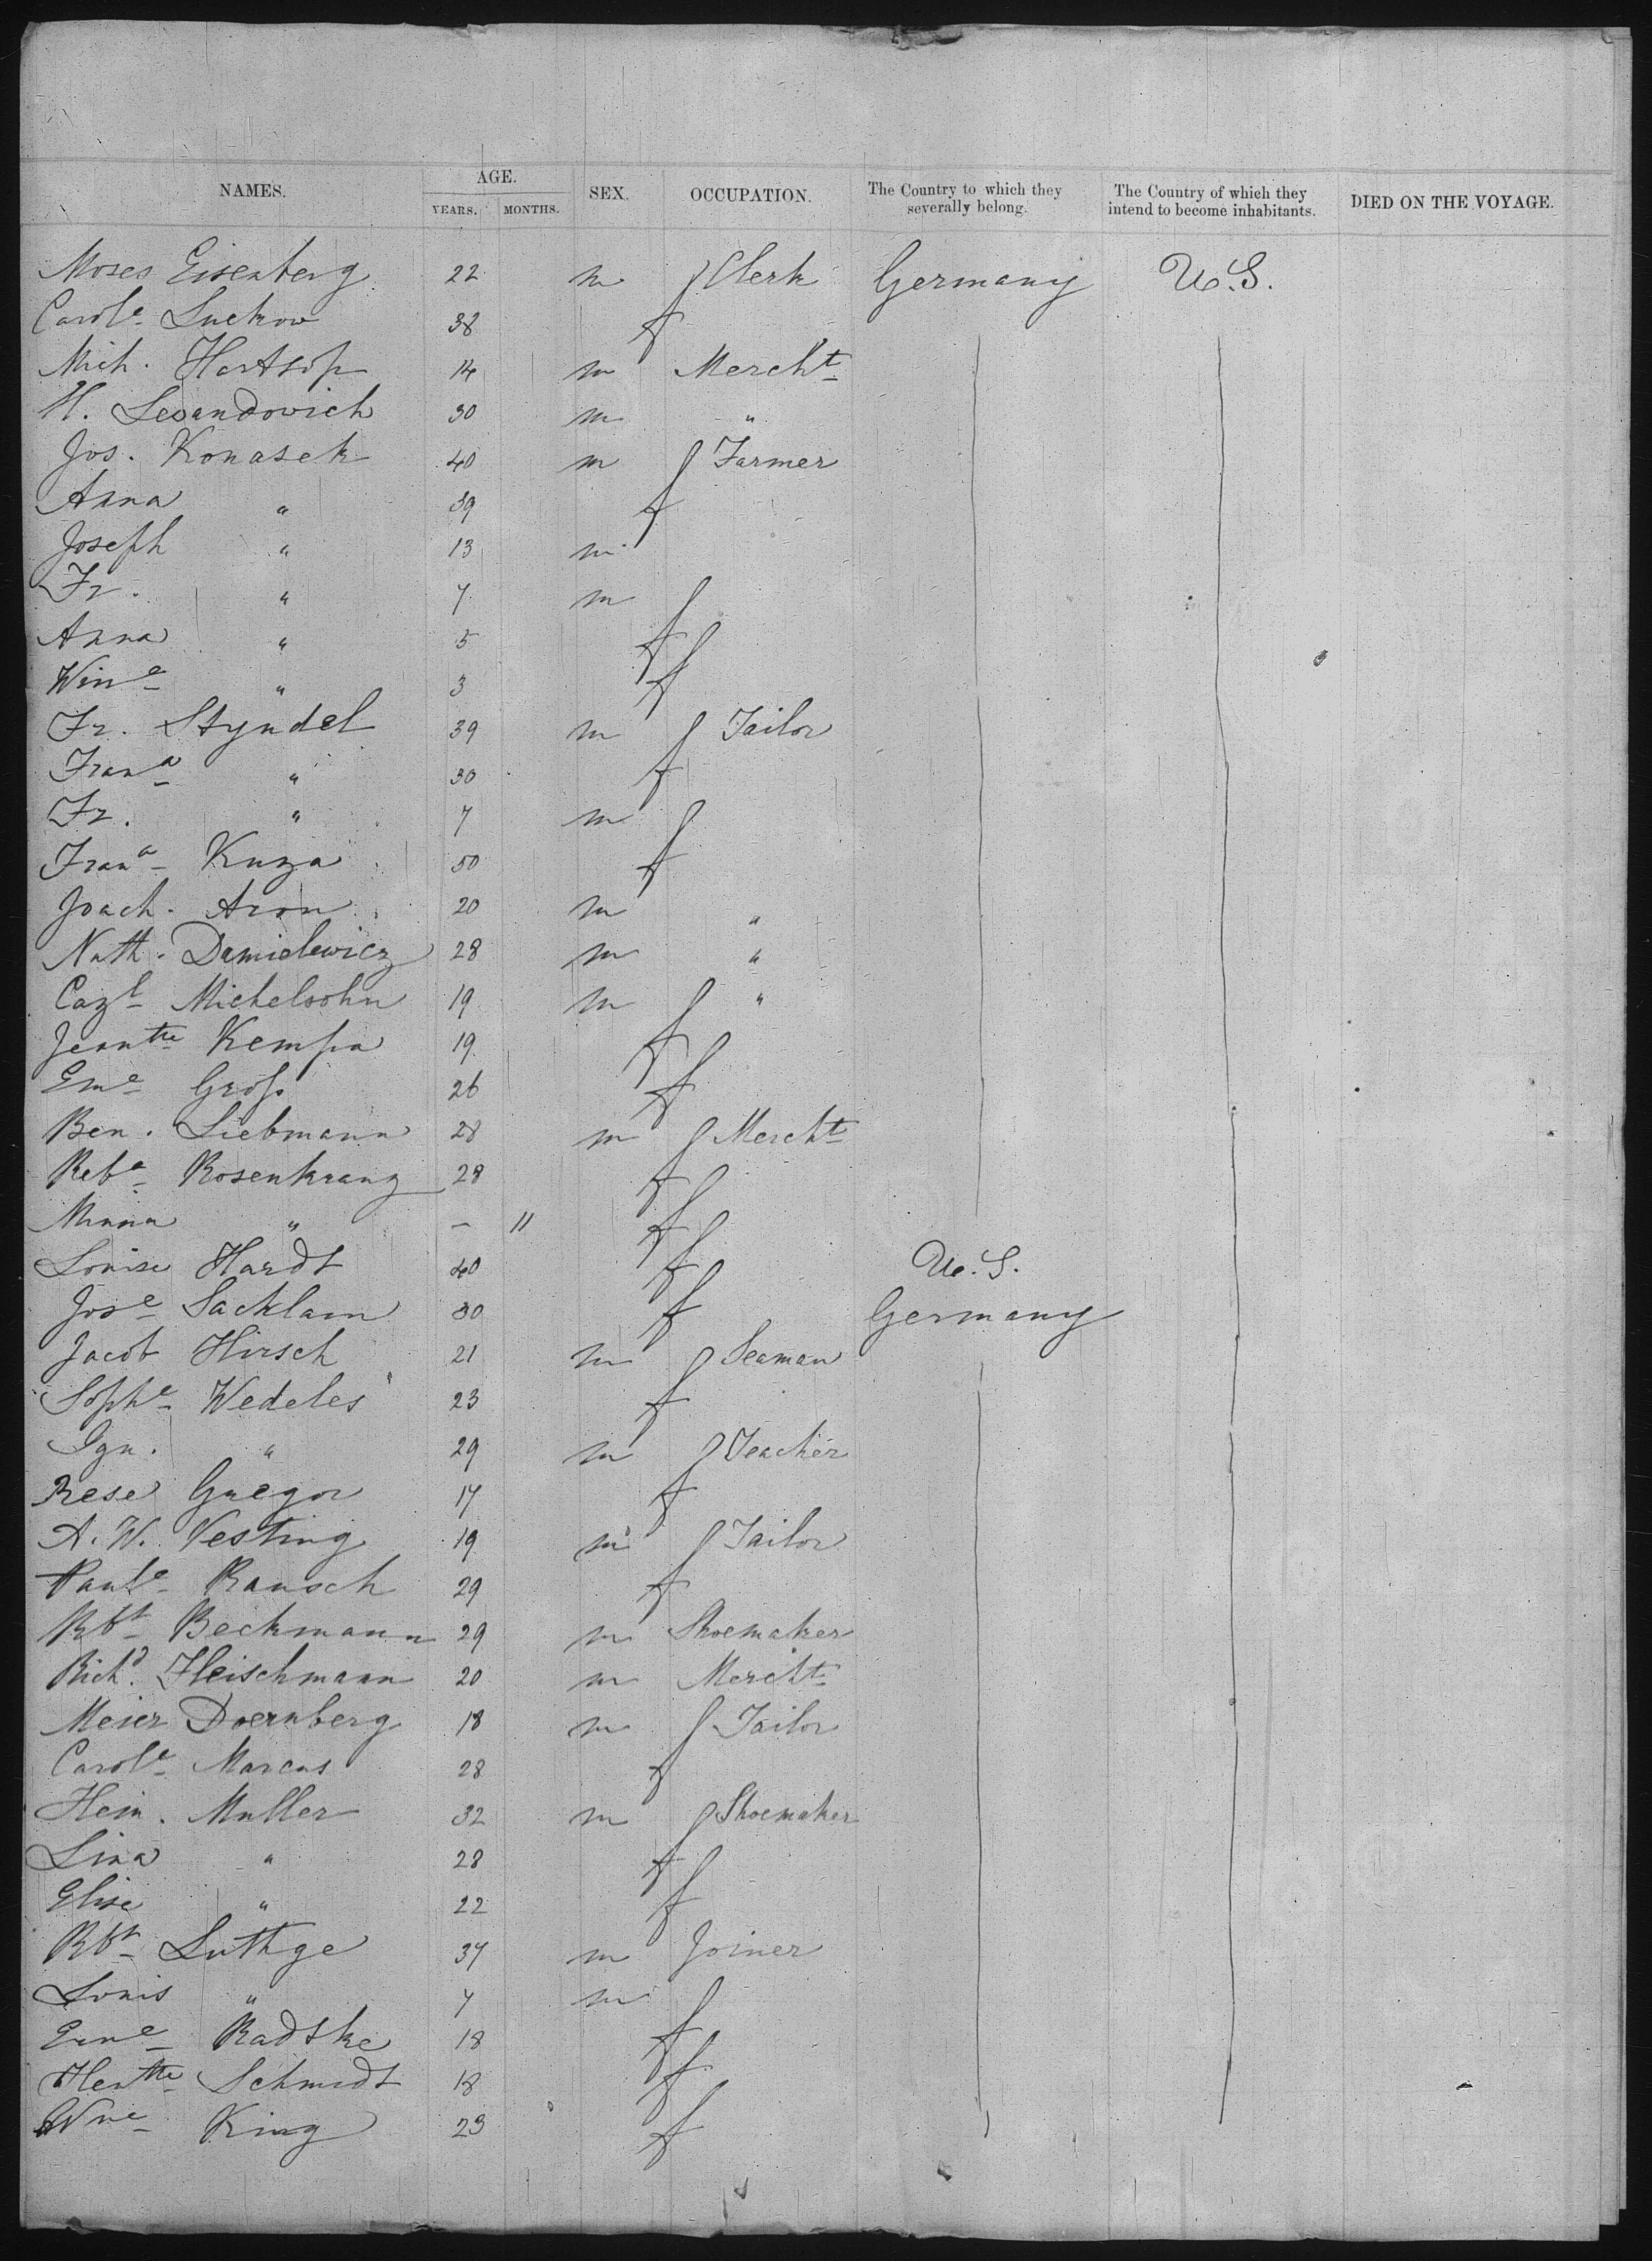 NAMES. AGE. SEX. OCCUPATION. The Country to which they severally belong. The Country of which they intend to become inhabitants. DIED ON THE VOYAGE.
YEARS. MONTHS.
Moses Eisenberg 22 m Clerk Germany U.S.
Carol^e Luckow 38 f
Mich. Hartsop 14 m Mercht
H. Levandovich 30 m "
Jos. Konasek 40 m Farmer
Anna " 39 f
Joseph " 13 m
Fr. " 7 m
Anna " 5 f
Win^e " 3 f
Fr. Styndel 39 m Tailor
Fran^a " 30 f
Fr. " 7 m
Fran^a Kuza 50 f
Joach. Aron 20 m "
Nath. Damielewicz 28 m "
Caz^l Michelsohn 19 m "
Jean^tte Kempa 19 f
Em^e Gross 26 f
Ben. Liebmann 28 m Mercht
Reb^a Rosenkranz 28 f
Minna " — 11 f
Louise Hardt 40 f U.S.
Jos^e Sacklam 30 f Germany
Jacob Hirsch 21 m Seaman
Soph^e Wedeles 23 f
Ign. " 29 m Teacher
Rese Gregor 17 f
A. W. Vesting 19 m Tailor
Paul^e Rausch 29 f
Rb^t Beckmann 29 m Shoemaker
Rich^d Fleischmann 20 m Mercht
Meier Doernberg 18 m Tailor
Carol^e Marcus 28 f
Hein. Muller 32 m Shoemaker
Lina " 28 f
Elise " 22 f
Rb^t Luthge 37 m Joiner
Louis " 7 m
Ern^e Radtke 18 f
Hen^tte Schmidt 18 f
Wne King 23 f